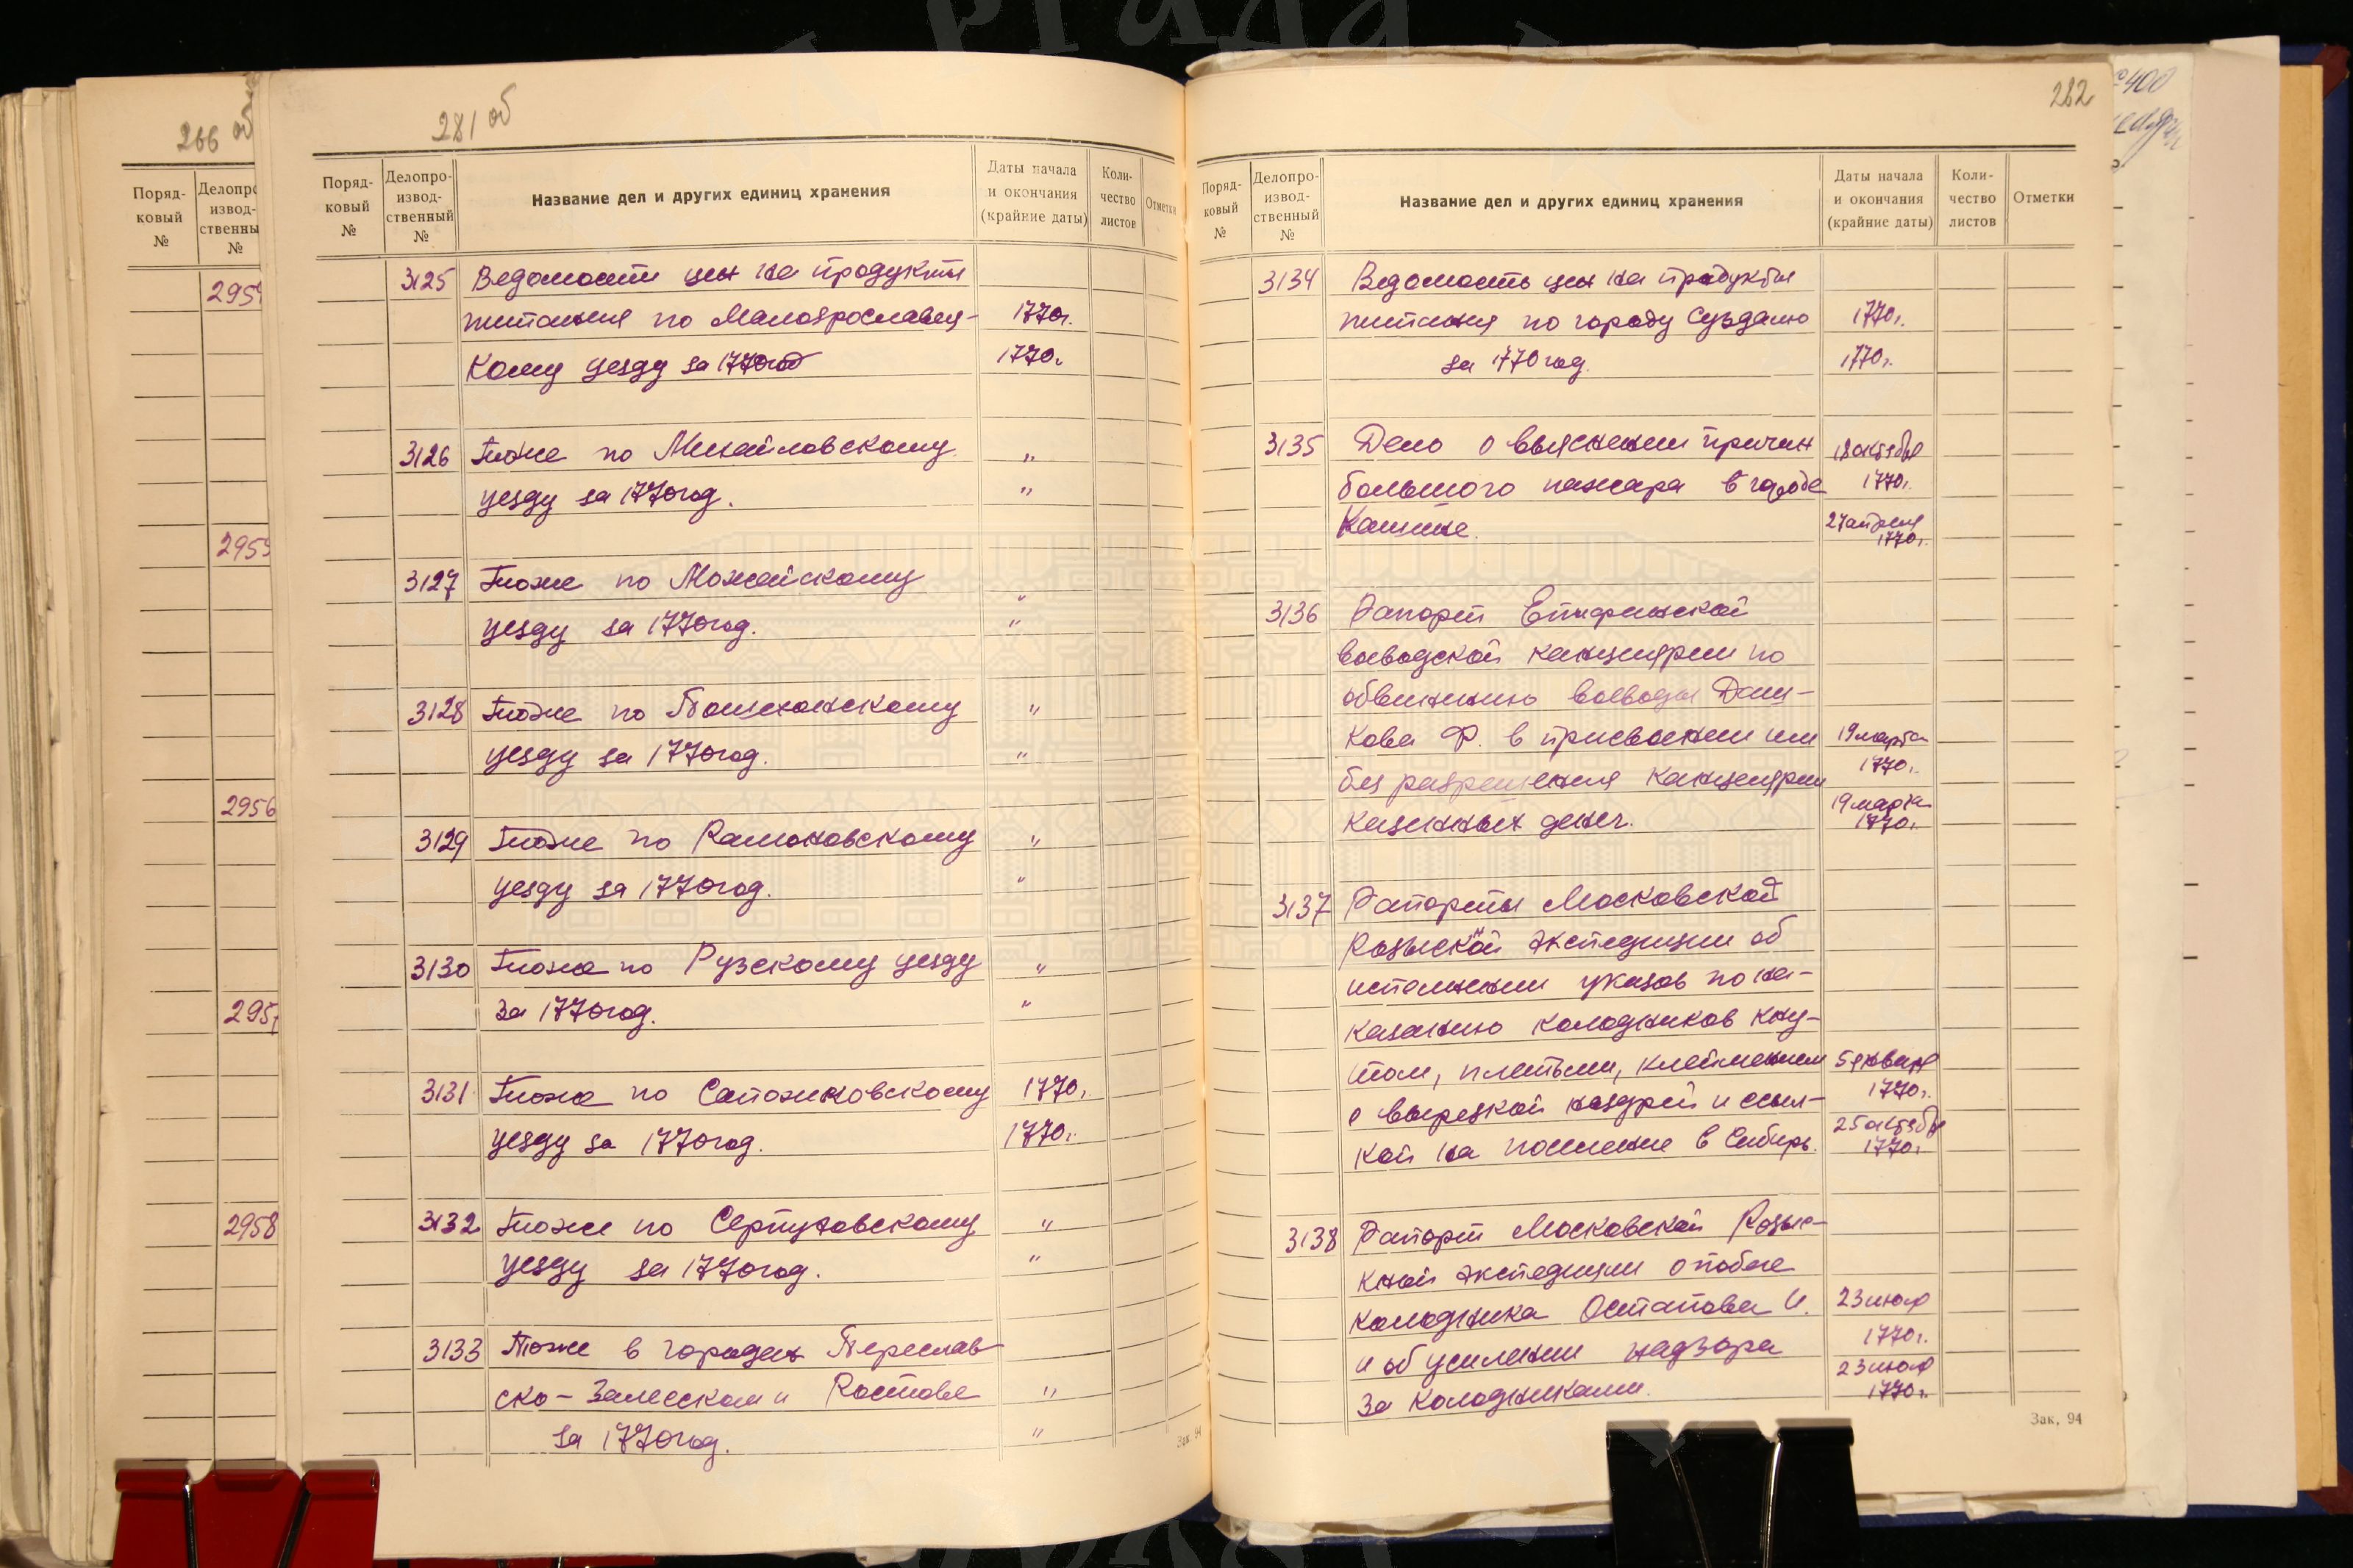 266 об
Поряд-
ковый
№
Делопро
извод-
ственны
№
2955
2956
2958
281 об
Поряд-
ковый
№
Делопро-
извод-
ственный
№
Название дел и других единиц хранения
Даты начала
и окончания
(крайние даты)
Коли-
чество
листов
Отметки
3125 Ведомости цен на продукты
питания по Малоярославец- 1770г.
кому уезду за 1770год 1770г.
3126 Тоже по Михайловскому "
уезду за 1770год. "
3127 Тоже по Можайскому "
уезду за 1770год. "
3128 Тоже по Пошехонскому "
уезду за 1770год. "
3129 Тоже по Romановскому "
уезду за 1770год. "
3130 Тоже по Рузскому уезду "
за 1770год. "
3131 Тоже по Сапожковскому 1770г.
уезду за 1770год. 1770г.
3132 Тоже по Серпуховскому "
уезду за 1770год. "
3133 Тоже в городах Переслав-
ско-Залесском и Ростове "
за 1770год. "
Зак. 94
282
Поряд-
ковый
№
Делопро-
извод-
ственный
№
Название дел и других единиц хранения
Даты начала
и окончания
(крайние даты)
Коли-
чество
листов
Отметки
3134 Ведомость цен на продукты
питания по городу Суздалю 1770г.
за 1770год. 1770г.
3135 Дело о выяснении причин 18 октября
большого пажара в городе 1770г.
Кашине. 27 апреля
1770г.
3136 Рапорт Епифанской
воеводской канцелярии по
обвинению воеводы Даш-
кова Ф. в присвоении им 19 марта
без разрешения канцелярии 1770г.
казенных денег. 19 марта
1770г.
3137 Рапорты Московской
Розыскной экспедиции об
исполнении указов по на-
казанию колодников кну-
том, плетьми, клеймением 5 января
с вырезкой ноздрей и ссыл- 1770г.
кой на поселение в Сибирь. 25 октября
1770г.
3138 Рапорт Московской Розыс-
кной экспедиции о побеге
колодника Остапова И. 23 июля
и об усилении надзора 1770г.
за колодниками. 23 июля
1770г.
Зак. 94